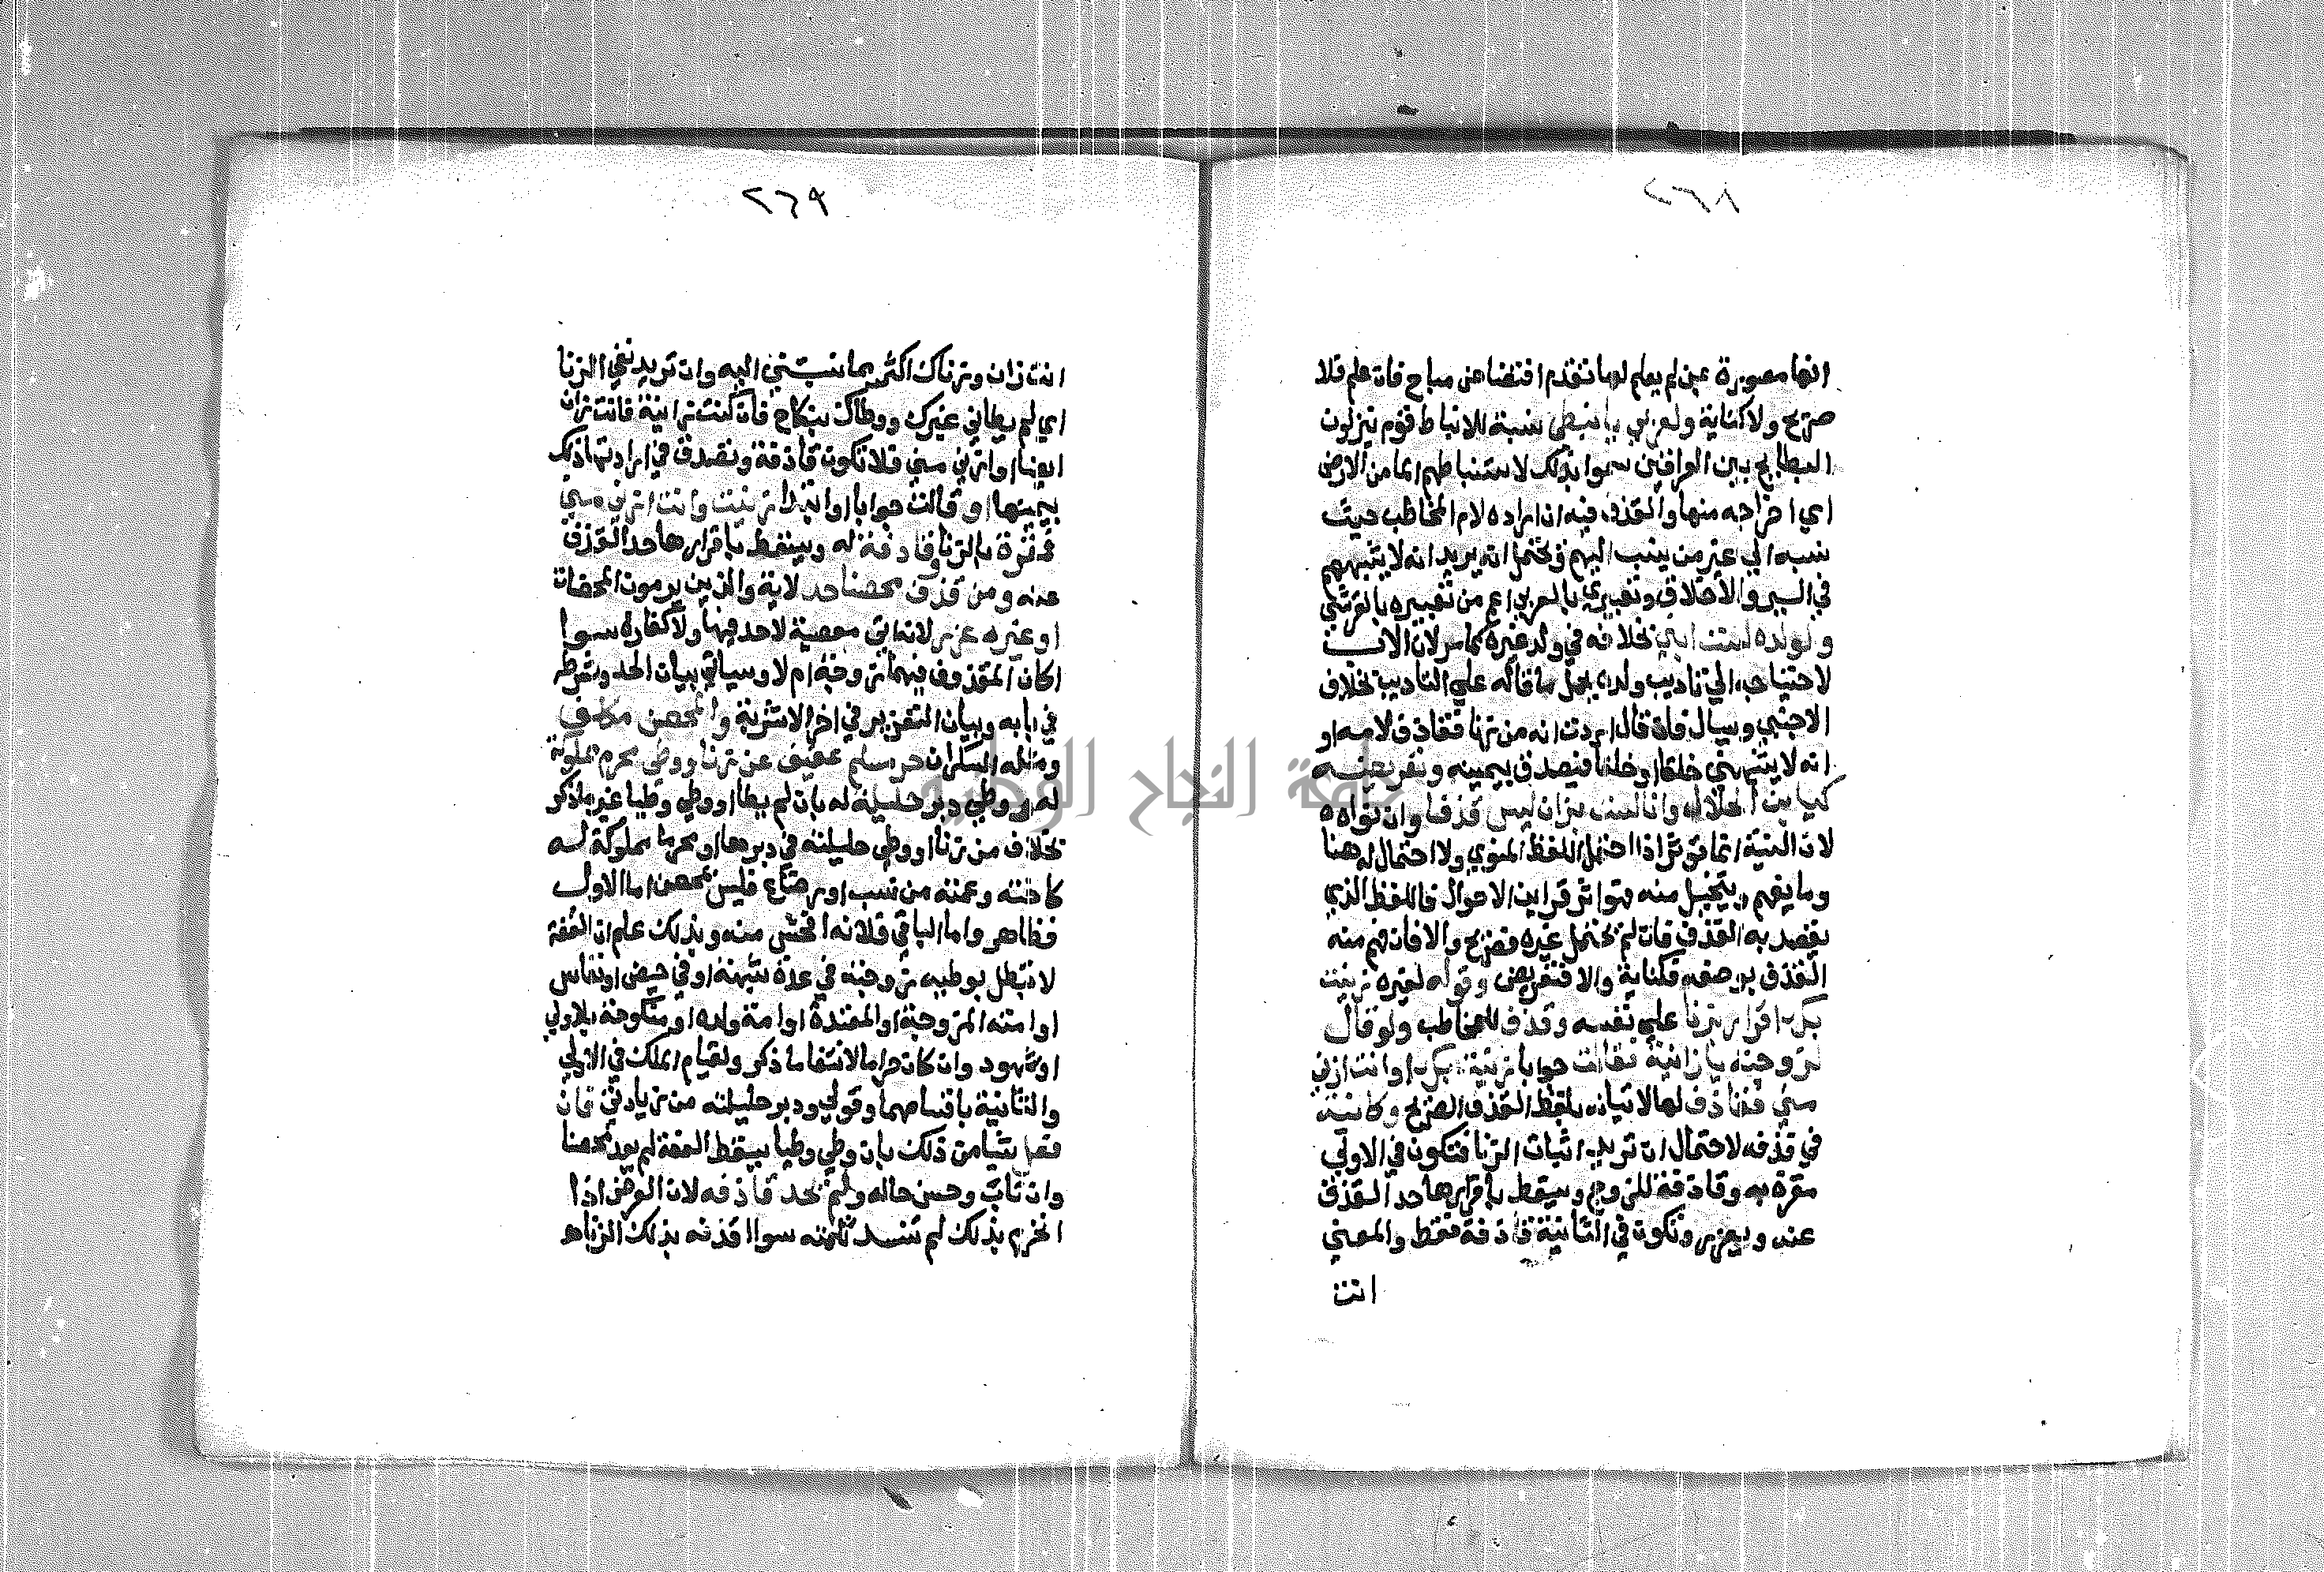 ٢٦٨
انها مصورة عن لم يعلم لها تقدم افتضاض مباح فان علم فلا
صريح ولا كناية ولعربي يا نبطي نسبة للانباط قوم ينزلون
البطايح بين العراقين سموا بذلك لاستنباطهم الما من الارض
اي اخراجه منها والقذف فيه ان اراده لام المخاطب حيث
نسبه الي غير من ينسب اليهم ويحتمل انه يريد انه لا يشبههم
في السير والاخلاق وتعبيري بالعربي اعم من تعبيره بالقرشي
ولولده لست ابني بخلافه في ولد غيره كما مر لان الاب
لاحتياجه الي تاديب ولده يحمل ما قاله علي التاديب بخلاف
الاجنبي ويسال فان قال اردت انه من زنا فقاذف لامه او
انه لا يشبهني خلقا او خلقا فيصدق بيمينه وتعريضه
كيا بن الحلال وانا لست بزان ليس قذفا وان نواه
لان النية انما توثر اذا احتمل اللفظ المنوي ولا احتمال له هنا
وما يفهم ويتخيل منه فهو اثر قراين الاحوال فاللفظ الذي
يقصد به القذف فان لم يحتمل غيره فصريح والا فان فهم منه
القذف بوضعه فكناية والا فتعريض وقوله لغيره زنيت
بك اقرار بزنا علي نفسه وقذف للمخاطب ولو قال
لزوجته يا زانية فقالت جوابا زنيت بك او انت ازني
مني فقاذف لها لاتيانه بلفظ القذف الصريح وكانية
في قذفه لاحتمال ان تريد اثبات الزنا فتكون في الاولي
مقرة به وقاذفة للزوج ويسقط باقرارها حد القذف
عنه ويعزر وتكون في الثانية قاذفة فقط والمعني
انت
٢٦٩
انت زان وزناك اكثر مما نسبتني اليه وان تريد نفي الزنا
اي لم يطاني غيرك ووطاك بنكاح فان كنت زانية فانت زان
ايضا او ازني مني فلا تكون قاذفة وتصدق في ارادتها ذلك
بيمينها او قالت جوابا او ابتدا زنيت وانت ازني مني
فمقرة بالزنا وقاذفة له ويسقط باقرارها حد القذف
عنه ومن قذف محصنا حد لاية والذين يرمون المحصنات
او غيره عزر لانه اتي معصية لا حد فيها ولا كفارة سوا
اكان المقذوف فيهما زوجة ام لا وسياتي بيان الحد وشرطه
في بابه وبيان التعزير في اخر الاشربة والمحصن مكلف
ومثله السكران حر مسلم عفيف عن زنا ووطي محرم مملوكة
له ووطي دبر حليلة له بان لم يطا او وطي وطيا غير ما ذكر
بخلاف من زنا او وطي حليلته في دبرها او محرما مملوكة له
كاخته وعمته من نسب او رضاع فليس بمحصن اما الاول
فظاهر واما الباقي فلانه افحش منه وبذلك علم ان العفة
لا تبطل بوطيه زوجته في عدة شبهة او في حيض او نفاس
او امته المزوجة او المعتدة او امة ولده او منكوحة بلا ولي
او شهود وان كان حراما لانتفا ما ذكر ولقيام الملك في الاولي
والثانية باقسامهما وقولي ودبر حليلته من زيادتي فان
فعل شيا من ذلك بان وطي وطيا يسقط العفة لم يعد محصنا
وان تاب وحسن حاله ولم يحد قاذفه لان العرض اذا
انخرم بذلك لم تنسد ثلمته سواا قذفه بذلك الزنا ام
جامعة النجاح الوطنية